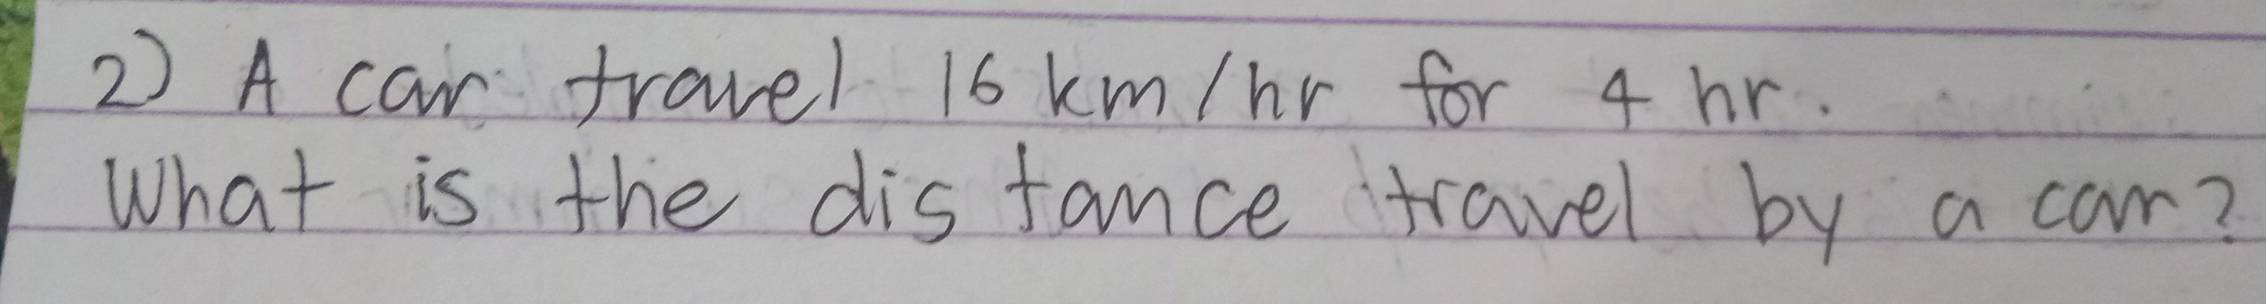 2) A car travel 16 km/hr for 4 hr.
What is the distance travel by a car?